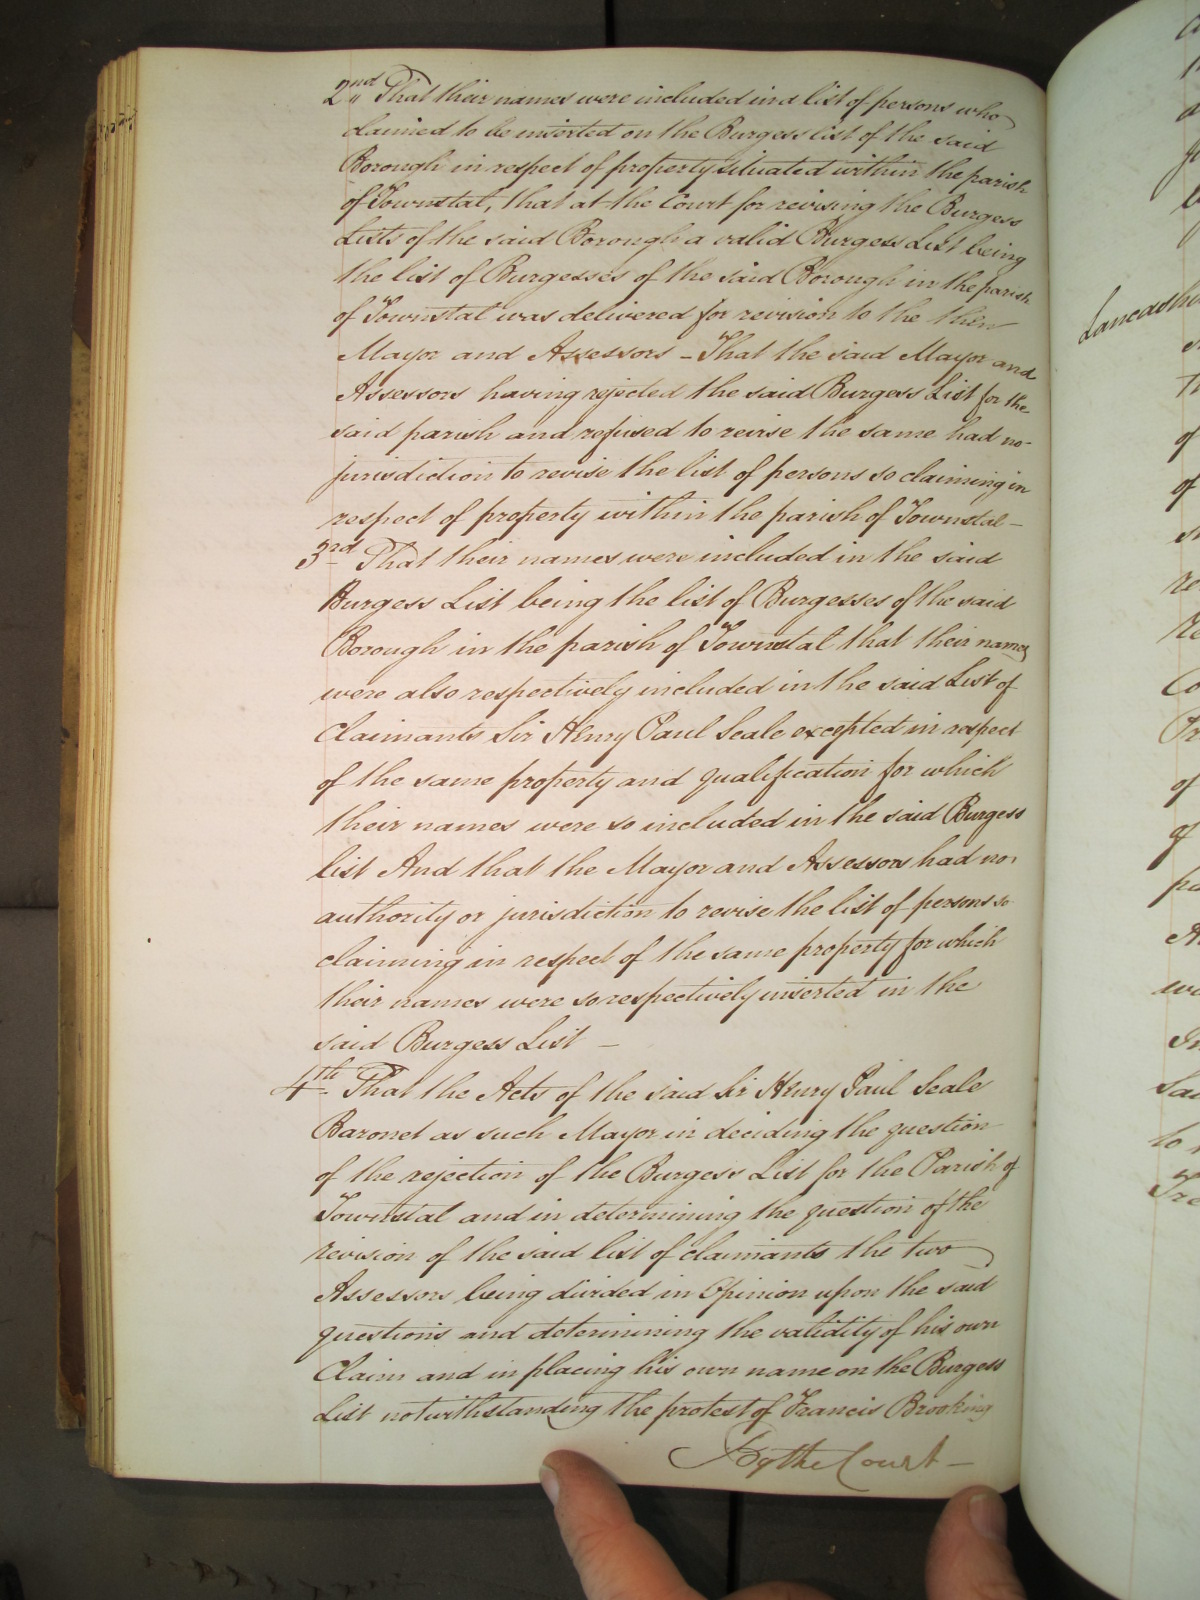 2nd That their names were included in a list of persons who
claimed to be inserted on the Burgess list of the said
Borough in respect of property situated within the parish
of Townstal, that at the Court for revising the Burgess
Lists of the said Borough a valid Burgess List being
the list of Burgesses of the said Borough in the parish
of Townstal was delivered for revision to the then
Mayor and Assessors – That the said Mayor and
Assessors having rejected the said Burgess List for the
said parish and refused to revise the same had no
jurisdiction to revise the list of persons so claiming in
respect of property within the parish of Townstal –
3rd That their names were included in the said
Burgess List being the list of Burgesses of the said
Borough in the parish of Townstal that their names
were also respectively included in the said List of
Claimants Sir Henry Paul Seale excepted in respect
of the same property and qualification for which
their names were so included in the said Burgess
list And that the Mayor and Assessors had no
authority or jurisdiction to revise the list of persons so
claiming in respect of the same property for which
their names were so respectively inserted in the
said Burgess List –
4th That the Acts of the said Sir Henry Paul Seale
Baronet as such Mayor in deciding the question
of the rejection of the Burgess List for the Parish of
Townstal and in determining the question of the
revision of the said list of claimants the two
Assessors being divided in Opinion upon the said
questions and determining the validity of his own
Claim and in placing his own name on the Burgess
List notwithstanding the protest of Francis Brooking
By the Court –